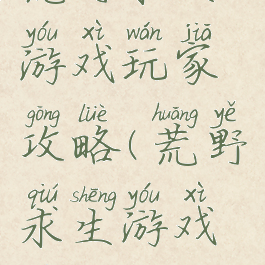 yóu xì wán jiā
游戏玩家
gōng lüè huāng yě
攻略(荒野
qiú shēng yóu xì
求生游戏